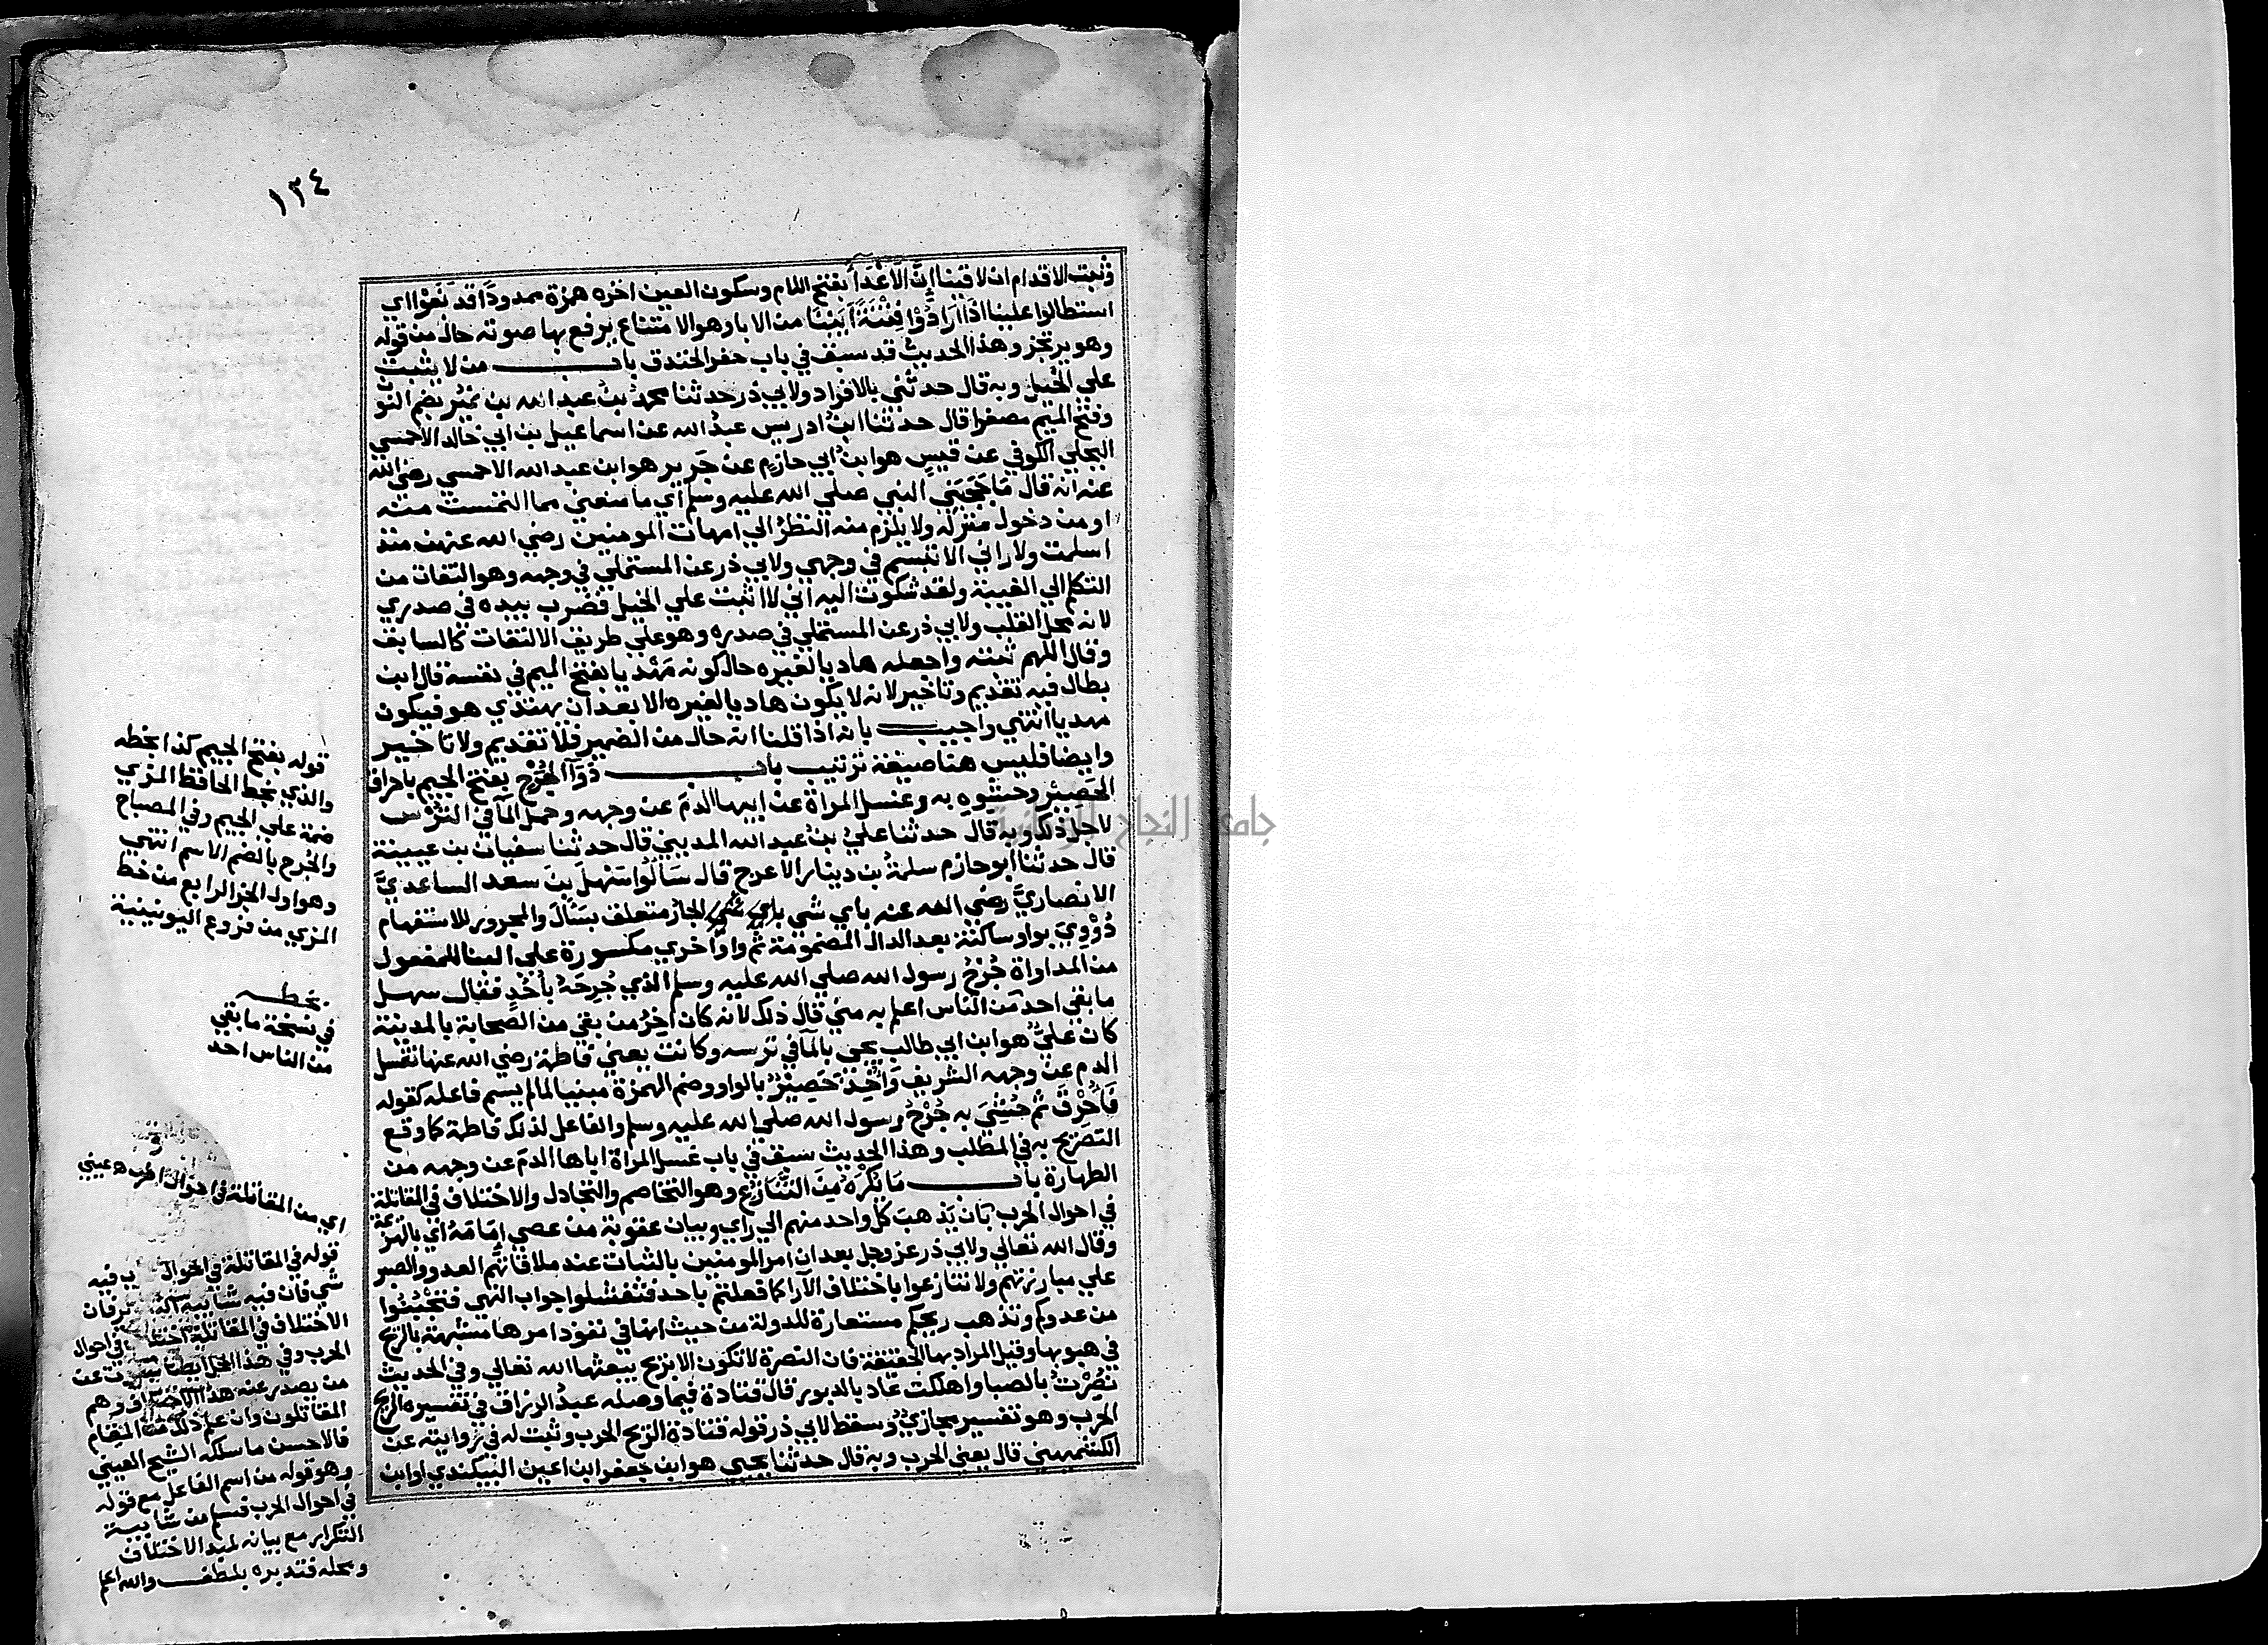 ١٣٤
وثبت الاقدام ان لاقينا إنَّ الأعْدَاءَ بفتح اللام وسكون العين اخره همزة ممدودًا قد بَغَوْا اي
استطالوا علينا اذا أَرَادُوْا فِتْنَةً أَبَيْنَا من الابا وهو الامتناع يرفع بها صوته حال من قوله
وهو يرتجز وهذا الحديث قد سبق في باب حفر الخندق باب من لا يثبت
علي الخيل وبه قال حدثني بالافراد ولابي ذر حدثنا محمد بن عبد الله بن نمير بضم النو
وفتح الميم مصغرا قال حدثنا ابن ادريس عبد الله عن اسماعيل بن ابي خالد الاحمسي
البجلي الكوفي عن قيس هو ابن ابي حازم عن جرير هو ابن عبد الله الاحمسي رضي الله
عنه انه قال مَا حَجَبَنِي النبي صلي الله عليه وسلم اي ما منعني مما التمست منه
او من دخول منزله ولا يلزم منه النظر الي امهات المومنين رضي الله عنهن منذ
اسلمت ولا راني الا تبسم في وجهي ولابي ذر عن المستملي في وجهه وهو التفات من
التكلم الي الغيبة ولقد شكوت اليه اني لا اثبت علي الخيل فضرب بيده في صدري
لانه محل القلب ولابي ذر عن المستملي في صدره وهو علي طريق الالتفات كالسابق
وقال اللهم ثبته واجعله هاديا لغيره حال كونه مَهْديا بفتح الميم في نفسه قال ابن
بطال فيه تقديم وتاخير لانه لا يكون هاديا لغيره الا بعد ان يهتدي هو فيكون
مهديا انتهي واجيب بانه اذا قلنا انه حال من الضمير فلا تقديم ولا تاخير
وايضا فليس هنا صيغة ترتيب باب دَوَآءِ الْجَرْحِ بفتح الجيم باحراق
الحَصِيْرِ وحشوه به وغسل المراة عن ابيها الدمَ عن وجهه وحمل المآ في الترس
لاجل ذلك وبه قال حدثنا علي بن عبد الله المديني قال حدثنا سفيان بن عيينة
قال حدثنا ابو حازم سلمة بن دينار الاعرج قال سَأَلُوا سَهْلَ بْنَ سعد الساعديَّ
الانصاريَّ رضي الله عنه باي شي الجار متعلق بسَأَلَ والمجرور للاستفهام
دُوْوِيَ بواو ساكنة بعد الدال المضمومة ثم واو اخري مكسورة علي البنا للمفعول
من المداواة جُرْحُ رسول الله صلي الله عليه وسلم الذي جُرِحَهُ بأُحُدٍ فقال سهل
ما بقي احد من الناس اعلم به مني قال ذلك لانه كان اخِرُ من بقي من الصحابة بالمدينة
كان عليٌّ هو ابن ابي طالب يجي بالمآ في ترسه وكانت يعني فاطمة رضي الله عنها تغسل
الدم عن وجهه الشريف وَأُخِذَ حَصِيْرٌ بالواو وضم الهمزة مبنيا لما لم يسم فاعله كقوله
فَأُحْرِقَ ثم حُشِيَ به جُرْحُ رسول الله صلي الله عليه وسلم والفاعل لذلك فاطمة كما وقع
التصريح به في المطلب وهذا الحديث سبق في باب غسل المراة اباها الدم عن وجهه من
الطهارة باب مَا يُكْرَهُ مِنَ التَّنَازُعِ وهو التخاصم والتجادل والاختلاف في المقاتلة
في احوال الحرب بان يَذْهبَ كل واحد منهم الي راي وبيان عقوبة من عصي اِمَامَهُ اي بالهزيمة
وقال الله تعالي ولابي ذر عز وجل بعد ان امر المومنين بالثبات عند ملاقاتهم العدو والصبر
علي مبارزتهم ولا تنازعوا باختلاف الآرا كما فعلتم باحد فتفشلوا جواب النهي فتجْبُنُوا
من عدوكم وتذهب ريحكم مستعارة للدولة من حيث انها في نفوذ امرها مشبهة بالريح
في هبوبها وقيل المراد بها الحقيقة فان النصرة لا تكون الا بريح يبعثها الله تعالي وفي الحديث
نُصِرْتُ بالصبا واهلكت عاد بالدبور قال قتادة فيما وصله عبد الرزاق في تفسيره الريح
الحرب وهو تفسير مجازيٌّ وسقط لابي ذر قوله قتادة الريح الحرب وثبت له في روايته عن
الكشميهني قال يعني الحرب وبه قال حدثنا يحيي هو ابن جعفر ابن اعين البيكندي او ابن
قوله بفتح الجيم كذا بخطه
والذي بخط الحافظ المزي
ضمة علي الجيم وفي المصباح
والجُرح بالضم الاسم انتهي
وهو اول الجز الرابع من خط
المزي من فروع اليونينية
بخطه
في نسخة ما بقي
من الناس احد
اي من المقاتلة في احوال الحرب ه عيني
قوله في المقاتلة في احوال فيه
شي فان فيه شائبة فان
الاختلاف في المقاتلة في احوال
الحرب وفي هذا المحل ايضا عن
من يصدر عنه هذا الاختلاف وهم
المقاتلون وان علم ذلك من المقام
فالاحسن ما سلكه الشيخ العيني
وهو قوله من اسم الفاعل مع قوله
في احوال الحرب فسلم من شائبة
التكرار مع بيانه لمبد الاختلاف
ومحله فتدبره بلطف والله اعلم
جامعة النجاح الوطنية